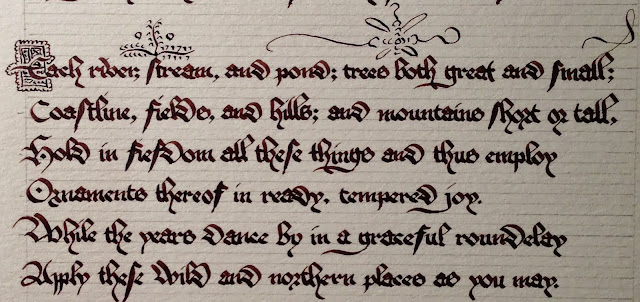 Each river, stream, and pond; trees both great and small;
Coastline, fields, and hills; and mountains short or tall,
Hold in fiefdom all these things and thus employ
Ornaments thereof in ready, tempered joy.
While the years dance by in a graceful roundelay
Apply these wild and northern places as you may.